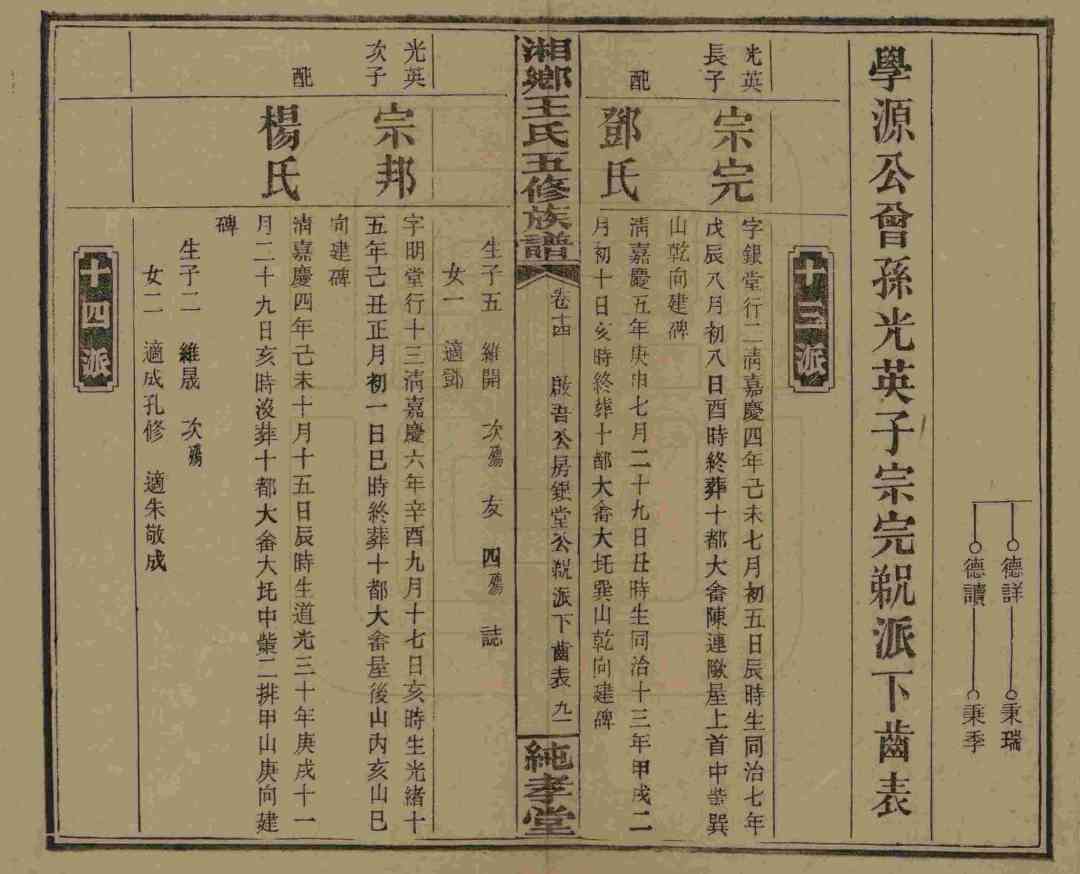 德詳 秉瑞
德讀 秉季
學源公曾孫光英子宗完㓡派下齒表
十三派
光英
長子
宗完
字銀堂行二清嘉慶四年己未七月初五日辰時生同治七年
戊辰八月初八日酉時終葬十都大畬陳連歐屋上首中巽
山乾向建碑
配
鄧氏
清嘉慶五年庚申七月二十九日丑時生同治十三年甲戌二
月初十日亥時終葬十都大畬大坵巽山乾向建碑
生子五 維開 次殤 友 四殤 誌
女一 適鄧
湘鄉王氏五修族譜
卷十四 啟吾公房銀堂公派下齒表 九一
純孝堂
光英
次子
宗邦
字明堂行十三清嘉慶六年辛酉九月十七日亥時生光緒十
五年己丑正月初一日巳時終葬十都大畬屋後山內亥山巳
向建碑
配
楊氏
清嘉慶四年己未十月十五日辰時生道光三十年庚戌十一
月二十九日亥時沒葬十都大畬大坵中二排甲山庚向建
碑
生子二 維晟 次殤
女二 適成孔修 適朱敬成
十四派